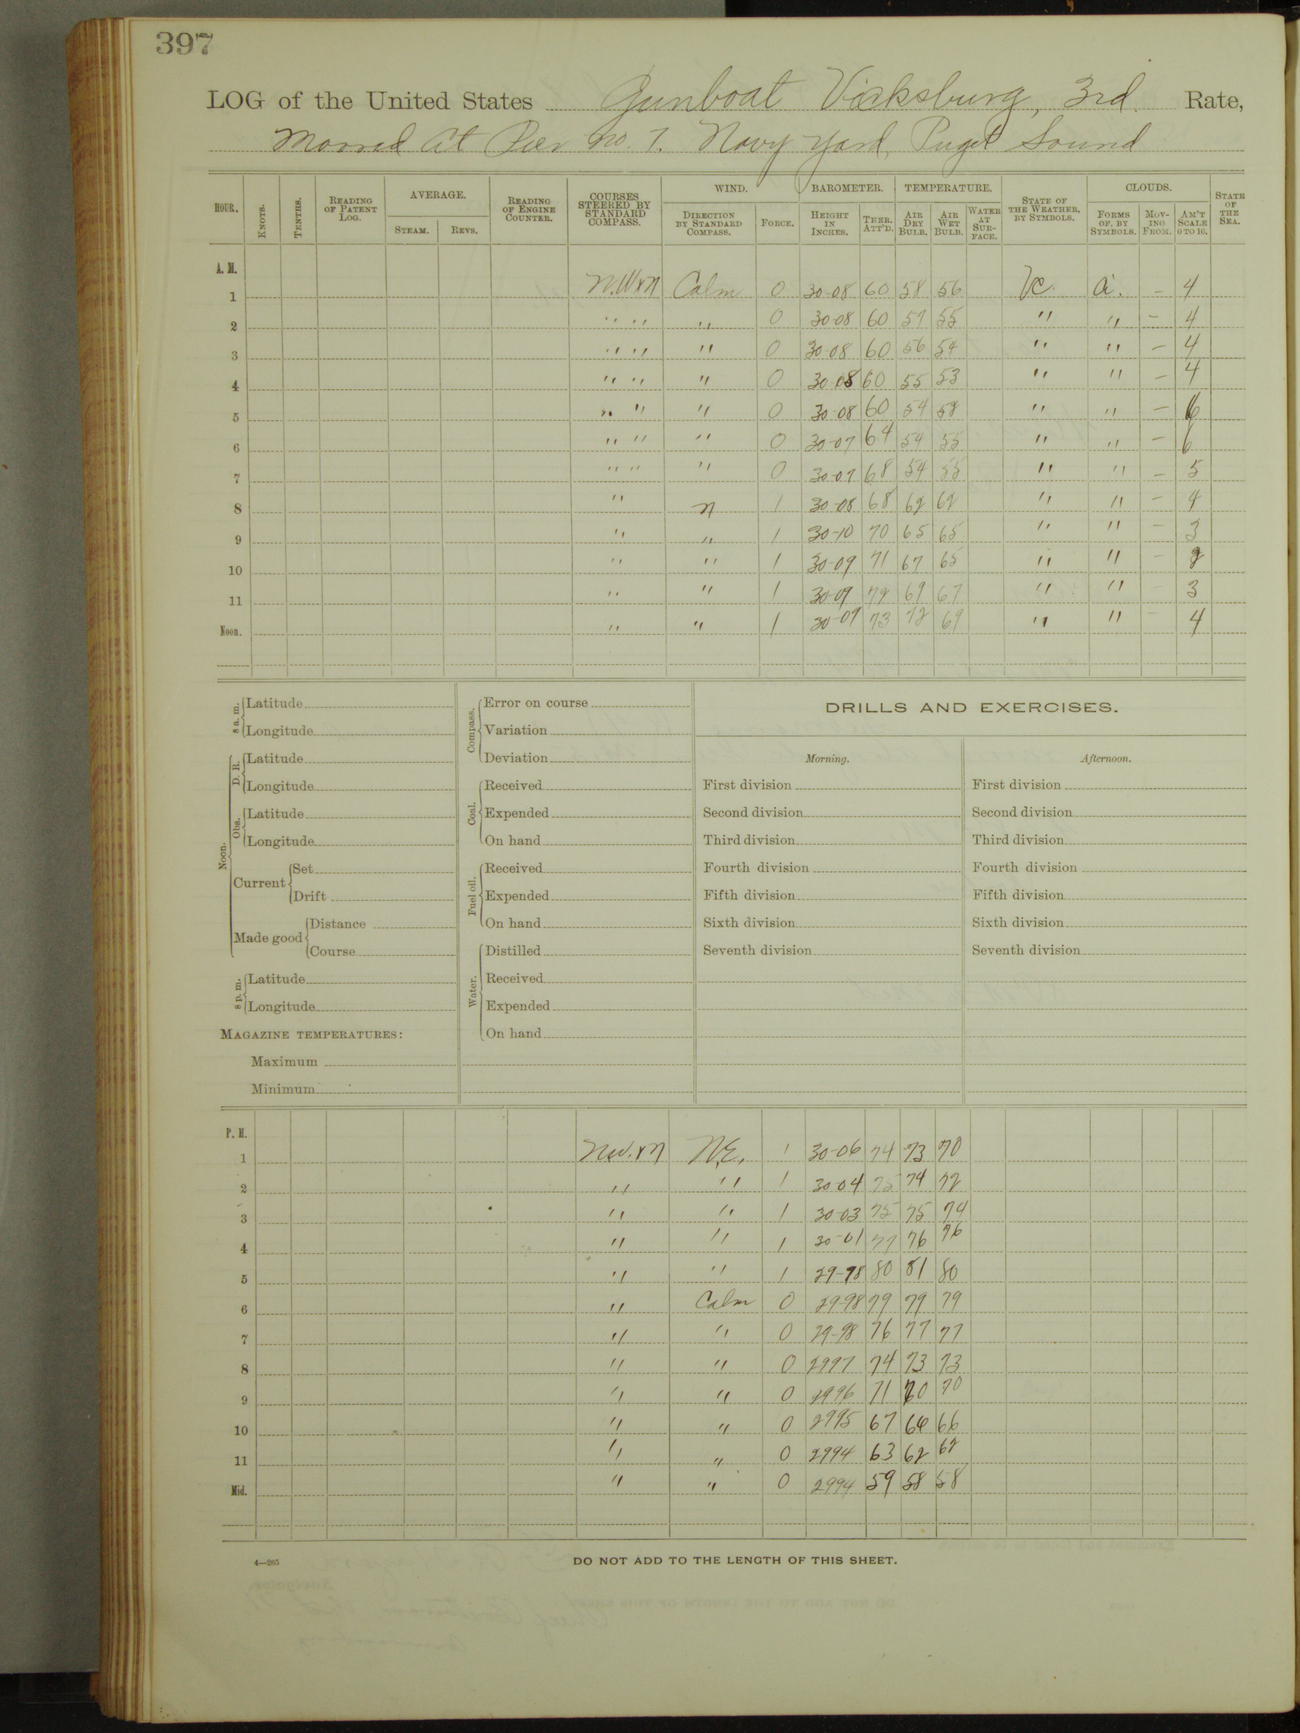 397
LOG of the United States Gunboat Vicksburg, 3rd. Rate,
Moored at Pier No. 7. Navy Yard, Puget Sound
HOUR. KNOTS. TENTHS. READING OF PATENT LOG. AVERAGE. STEAM. REVS. READING OF ENGINE COUNTER. COURSES STEERED BY STANDARD COMPASS. WIND. DIRECTION BY STANDARD COMPASS. FORCE. BAROMETER. HEIGHT IN INCHES. THER. ATT'D. TEMPERATURE. AIR DRY BULB. AIR WET BULB. WATER AT SURFACE. STATE OF THE WEATHER, BY SYMBOLS. CLOUDS. FORMS OF, BY SYMBOLS. MOVING FROM. AM'T SCALE 0 TO 10. STATE OF THE SEA.
A. M.
1 N.WxN Calm 0 30-08 60 58 56 Vc Ci. – 4
2 " " " 0 30-08 60 57 55 " " – 4
3 " " " 0 30-08 60 56 54 " " – 4
4 " " " 0 30-08 60 55 53 " " – 4
5 " " " 0 30-08 60 54 " " – 6
6 " " " 0 30-07 64 54 55 " " – 6
7 " " " 0 30-07 68 54 55 " " – 5
8 " N 1 30-08 68 62 62 " " – 4
9 " " 1 30-10 70 65 65 " " – 3
10 " " 1 30-09 71 67 65 " " – 2
11 " " 1 30-09 72 69 67 " " – 3
Noon. " " 1 30-07 73 72 69 " " – 4
8 a. m. Latitude
Longitude
Noon. D. R. Latitude
Longitude
Obs. Latitude
Longitude
Current Set
Drift
Made good Distance
Course
8 p. m. Latitude
Longitude
MAGAZINE TEMPERATURES:
Maximum
Minimum
Compass. Error on course
Variation
Deviation
Coal. Received
Expended
On hand
Fuel oil. Received
Expended
On hand
Water. Distilled
Received
Expended
On hand
DRILLS AND EXERCISES.
Morning. Afternoon.
First division First division
Second division Second division
Third division Third division
Fourth division Fourth division
Fifth division Fifth division
Sixth division Sixth division
Seventh division Seventh division
P. M.
1 NW.xN N.E. 1 30-06 74 73 70
2 " " 1 30-04 75 74 72
3 " " 1 30-03 75 75 74
4 " " 1 30-01 77 76 76
5 " " 1 29-98 80 81 80
6 " Calm 0 29-98 79 79 79
7 " " 0 29-98 76 77 77
8 " " 0 2997 74 73 73
9 " " 0 2996 71 70 70
10 " " 0 2995 67 66 66
11 " " 0 2994 63 62 62
Mid. " " 0 2994 59 58 58
4—265 DO NOT ADD TO THE LENGTH OF THIS SHEET.